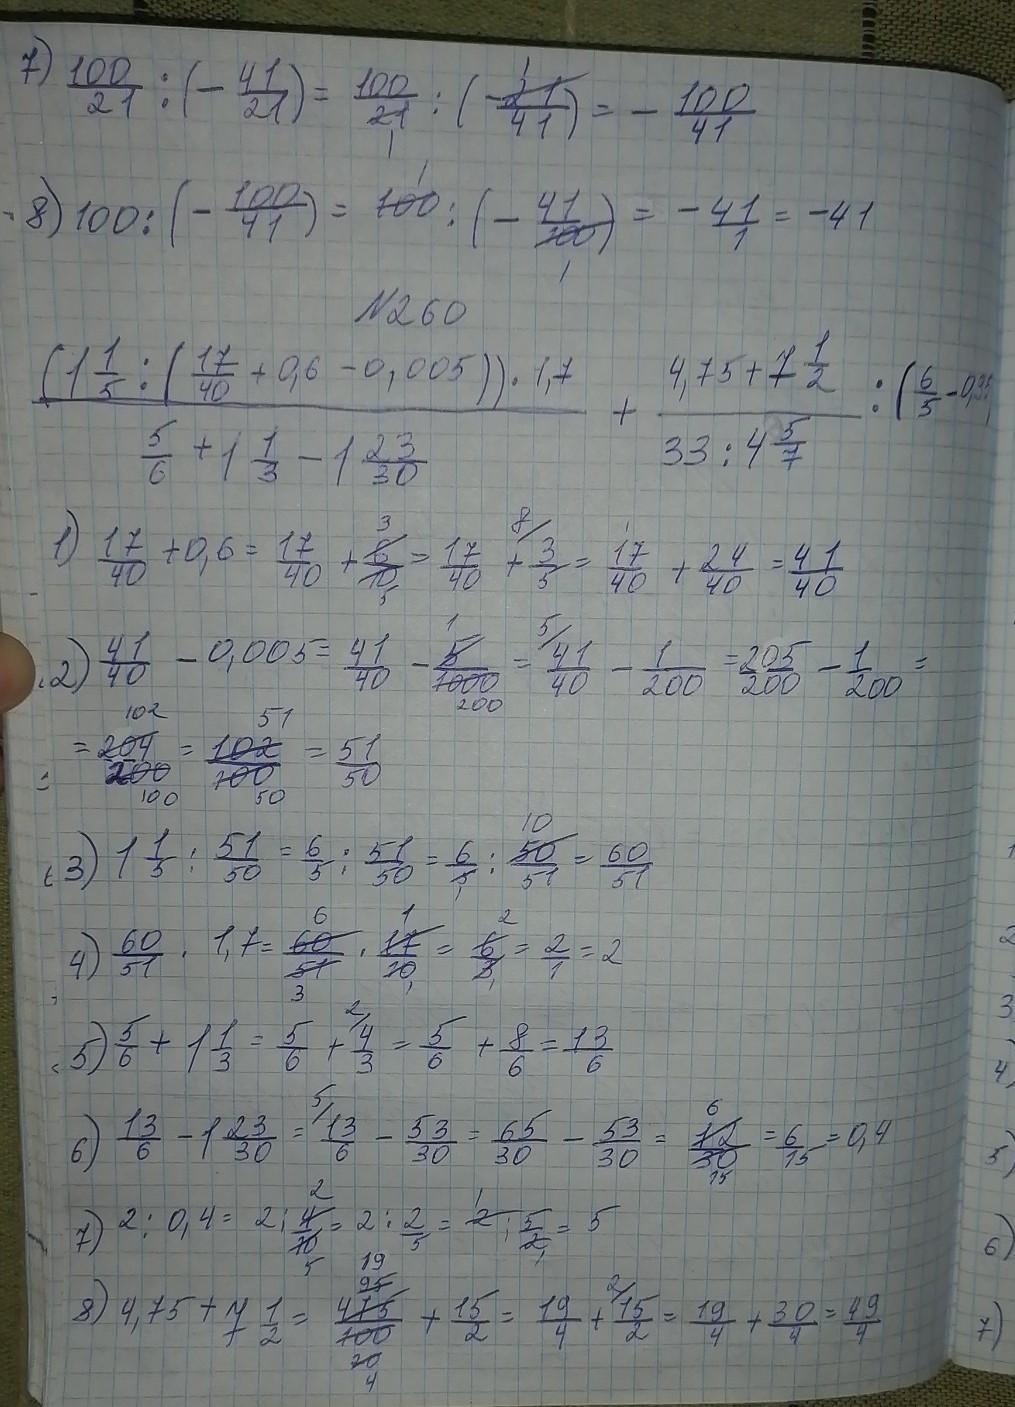 7) 100/21 : (- 41/21) = 100/21 : (- 21/41) = - 100/41
1 1
8) 100 : (- 100/41) = 100 : (- 41/100) = - 41/1 = -41
1 1
N260
(1 1/5 : (17/40 + 0,6 - 0,005)) · 1,7 / 5/6 + 1 1/3 - 1 23/30 + 4,75 + 7 1/2 / 33 : 4 5/7 : (6/5 - 0,95
1) 17/40 + 0,6 = 17/40 + 6/10 = 17/40 + 3/5 = 17/40 + 24/40 = 41/40
3 5 8
2) 41/40 - 0,005 = 41/40 - 5/1000 = 41/40 - 1/200 = 205/200 - 1/200 =
1 200 5
= 204/200 = 102/100 = 51/50
102 100 51 50
3) 1 1/5 : 51/50 = 6/5 : 51/50 = 6/5 : 50/51 = 60/51
1 10
4) 60/51 · 1,7 = 60/51 · 17/10 = 6/3 = 2/1 = 2
6 3 1 1 2 1
5) 5/6 + 1 1/3 = 5/6 + 4/3 = 5/6 + 8/6 = 13/6
2
6) 13/6 - 1 23/30 = 13/6 - 53/30 = 65/30 - 53/30 = 12/30 = 6/15 = 0,4
5 6 15
7) 2 : 0,4 = 2 : 4/10 = 2 : 2/5 = 2 : 5/2 = 5
2 5 1 1
8) 4,75 + 7 1/2 = 475/100 + 15/2 = 19/4 + 15/2 = 19/4 + 30/4 = 49/4
19 95 20 4 2
2
3)
4)
5)
6)
7)